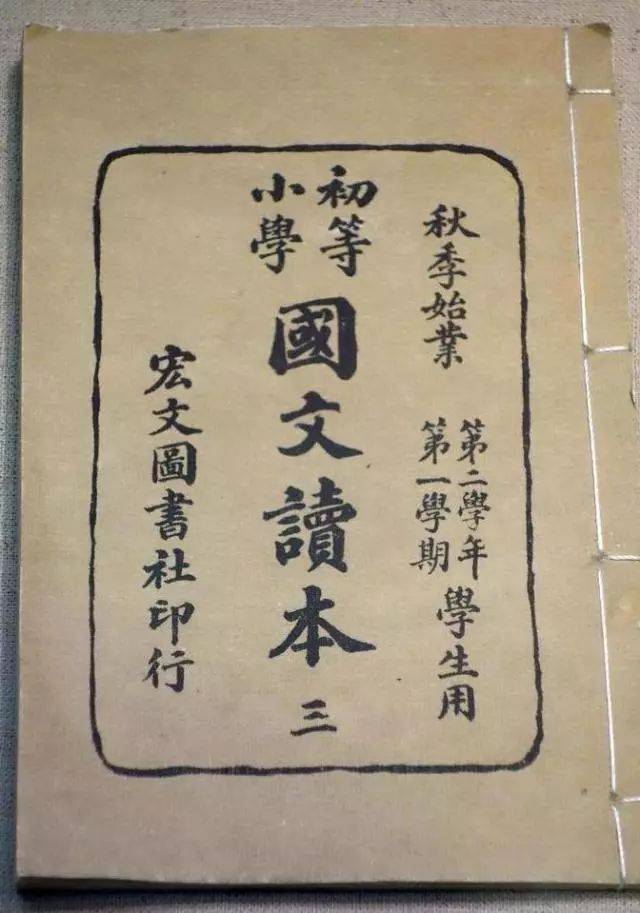 秋季始業
第二學年
第一學期
學生用
初等
小學
國文讀本
三
宏文圖書社印行